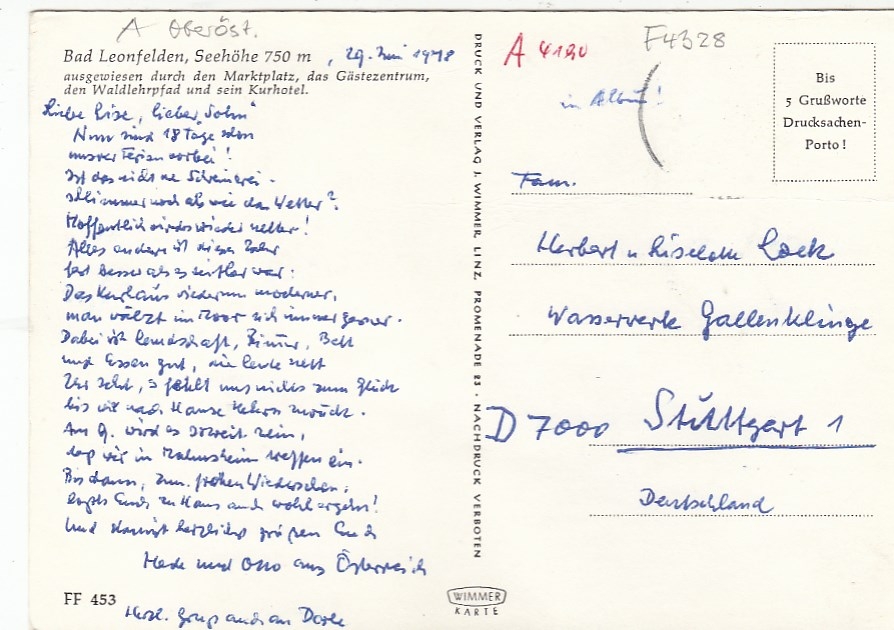 A Oberöst.
Bad Leonfelden, Seehöhe 750 m, 29. Juni 1978
ausgewiesen durch den Marktplatz, das Gästezentrum,
den Waldlehrpfad und sein Kurhotel.
Liebe Lise, lieber Sohn"
Nun sind 18 Tage schon
unsrer Ferien vorbei!
Ist das nicht ne Schweinerei -
schlimmer noch als wie das Wetter?
Hoffentlich wirds wieder netter!
Alles andere ist dieses Jahr
fast besser als es seither war:
Das Kurhaus wiederum moderner,
man wälzt im Moor sich immer gerner.
Dabei ist Landschaft, Zimmer, Bett
und Essen gut, die Leute nett
Ihr seht, s fehlt uns nichts zum Glück
bis wir nach Hause kehren zurück.
Am 9. wird es soweit sein,
daß wir in Malmsheim treffen ein.
Bis dann, zum frohen Wiedersehen,
laßts Euch zu Haus auch wohl ergehn!
Und damit herzlichst grüßen Euch
Hede und Otto aus Österreich
Herzl. Gruß auch an Dorle
FF 453
DRUCK UND VERLAG J. WIMMER, LINZ, PROMENADE 23 · NACHDRUCK VERBOTEN
WIMMER
KARTE
A 4190
F4328
in Album!
Bis
5 Grußworte
Drucksachen-
Porto!
Fam.
Herbert u Liselotte
Wasserwerk Gallenklinge
D 7000 Stuttgart 1
Deutschland